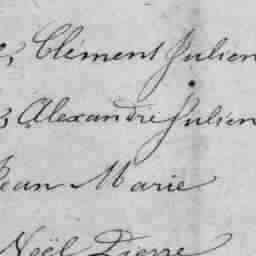 Clément Julien
Alexandre Julien
Jean Marie
Noël Pierre